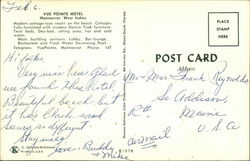 Feb 6.
VUE POINTE HOTEL
Montserrat, West Indies
Modern cottage-type resort on the beach. Cottages
fully furnished with modern Danish Teak furniture.
Twin beds, Day-bed, sitting area, hot and cold
water.
Main building contains Lobby, Bar-lounge,
Restaurant and Fresh Water Swimming Pool.
VuePointe, Montserrat Phone:
Hi folks
Very nice here. Glad
we found this hotel
Beautiful beach but
it has black sand
being so different
Stay well
Love Buddy
+ Mike
POST CARD
PLACE
STAMP
HERE
Mr + Mrs Frank Reynolds
So. Addison,
Maine
U.S.A
airmail